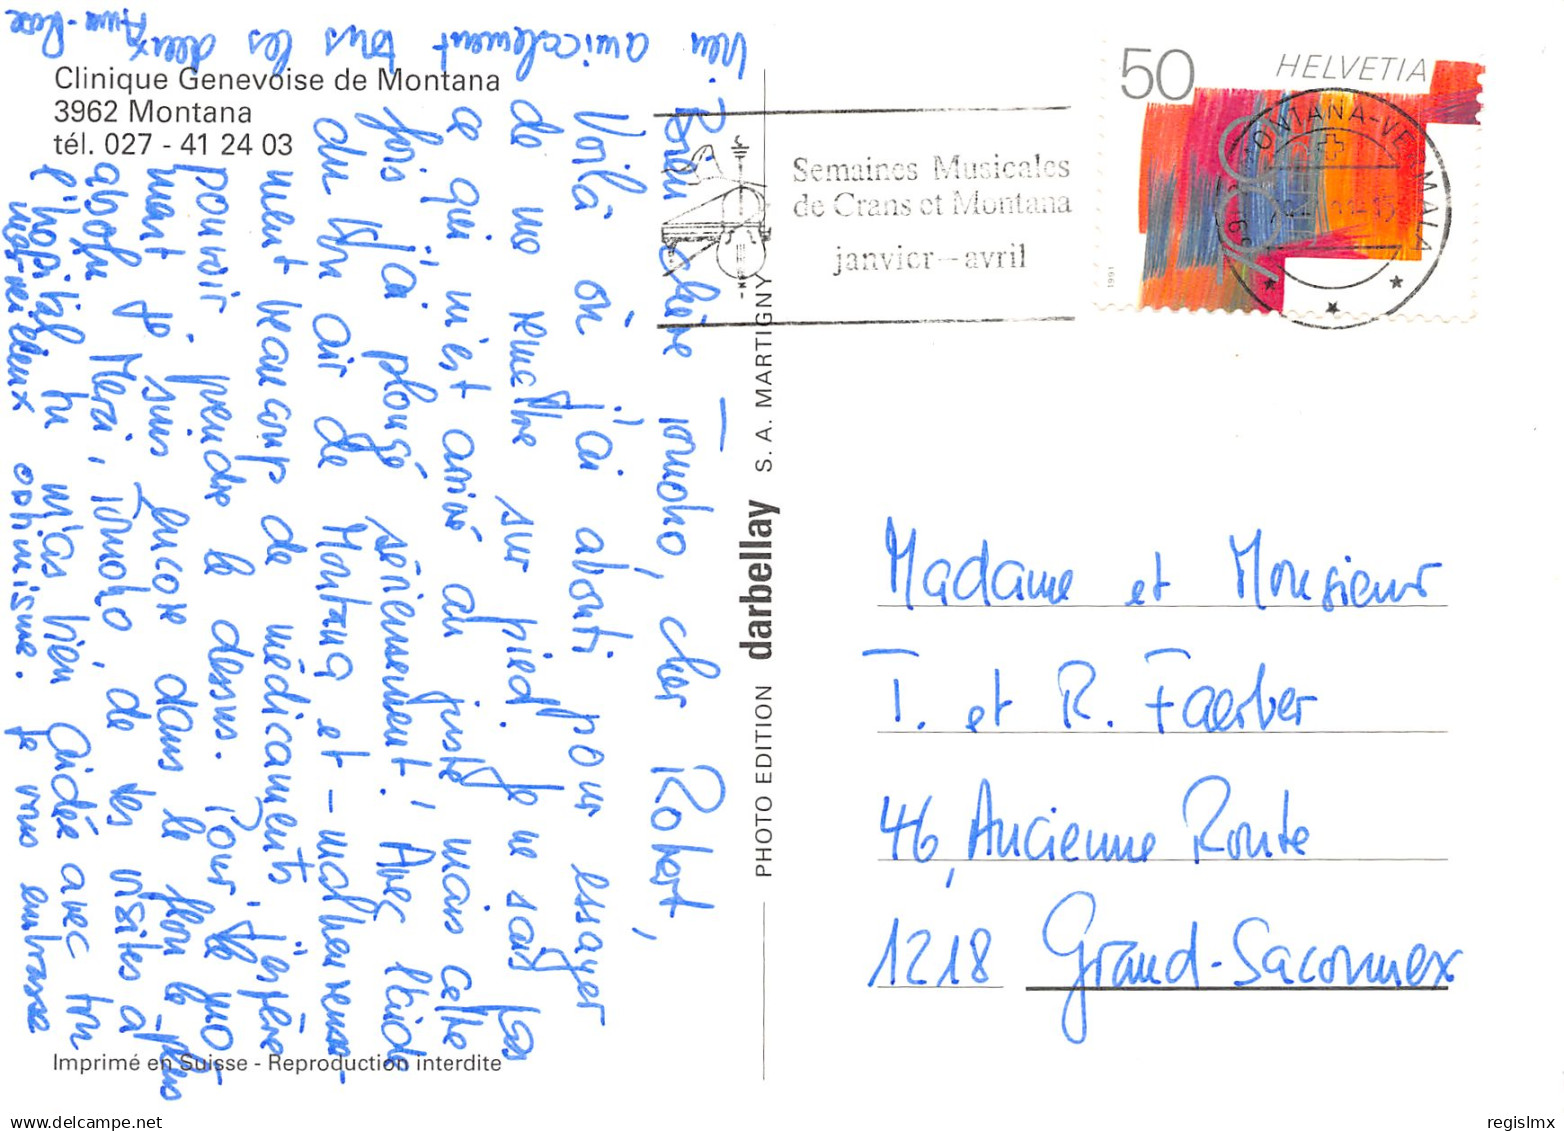 Clinique Genevoise de Montana
3962 Montana
tél. 027 - 41 24 03
Bien chère Tomoko, cher Robert,
Voilà où j'ai abouti pour essayer
de me remettre sur pied. Je ne sais pas
ce qui m'est arrivé au juste, mais cette
fois j'ai plongé sérieusement! Avec l'aide
du bon air de Montana et - malheureuse-
ment beaucoup de médicaments j'espère
pouvoir prendre le dessus. Pour le mo
ment je suis encore dans le flou le plus
absolu. Merci, Tomoko, de tes visites à
l'hôpital tu m'as bien aidée avec ton
merveilleux optimisme. Je vous embrasse
bien amicalement tous les deux
Anne-Rose
Imprimé en Suisse - Reproduction interdite
PHOTO EDITION darbellay S. A. MARTIGNY
Semaines Musicales
de Crans et Montana
janvier - avril
50 HELVETIA
700
1991
MONTANA-VERMALA
Madame et Monsieur
T. et R. Faerber
46, Ancienne Route
1218 Grand-Saconnex
regislmx